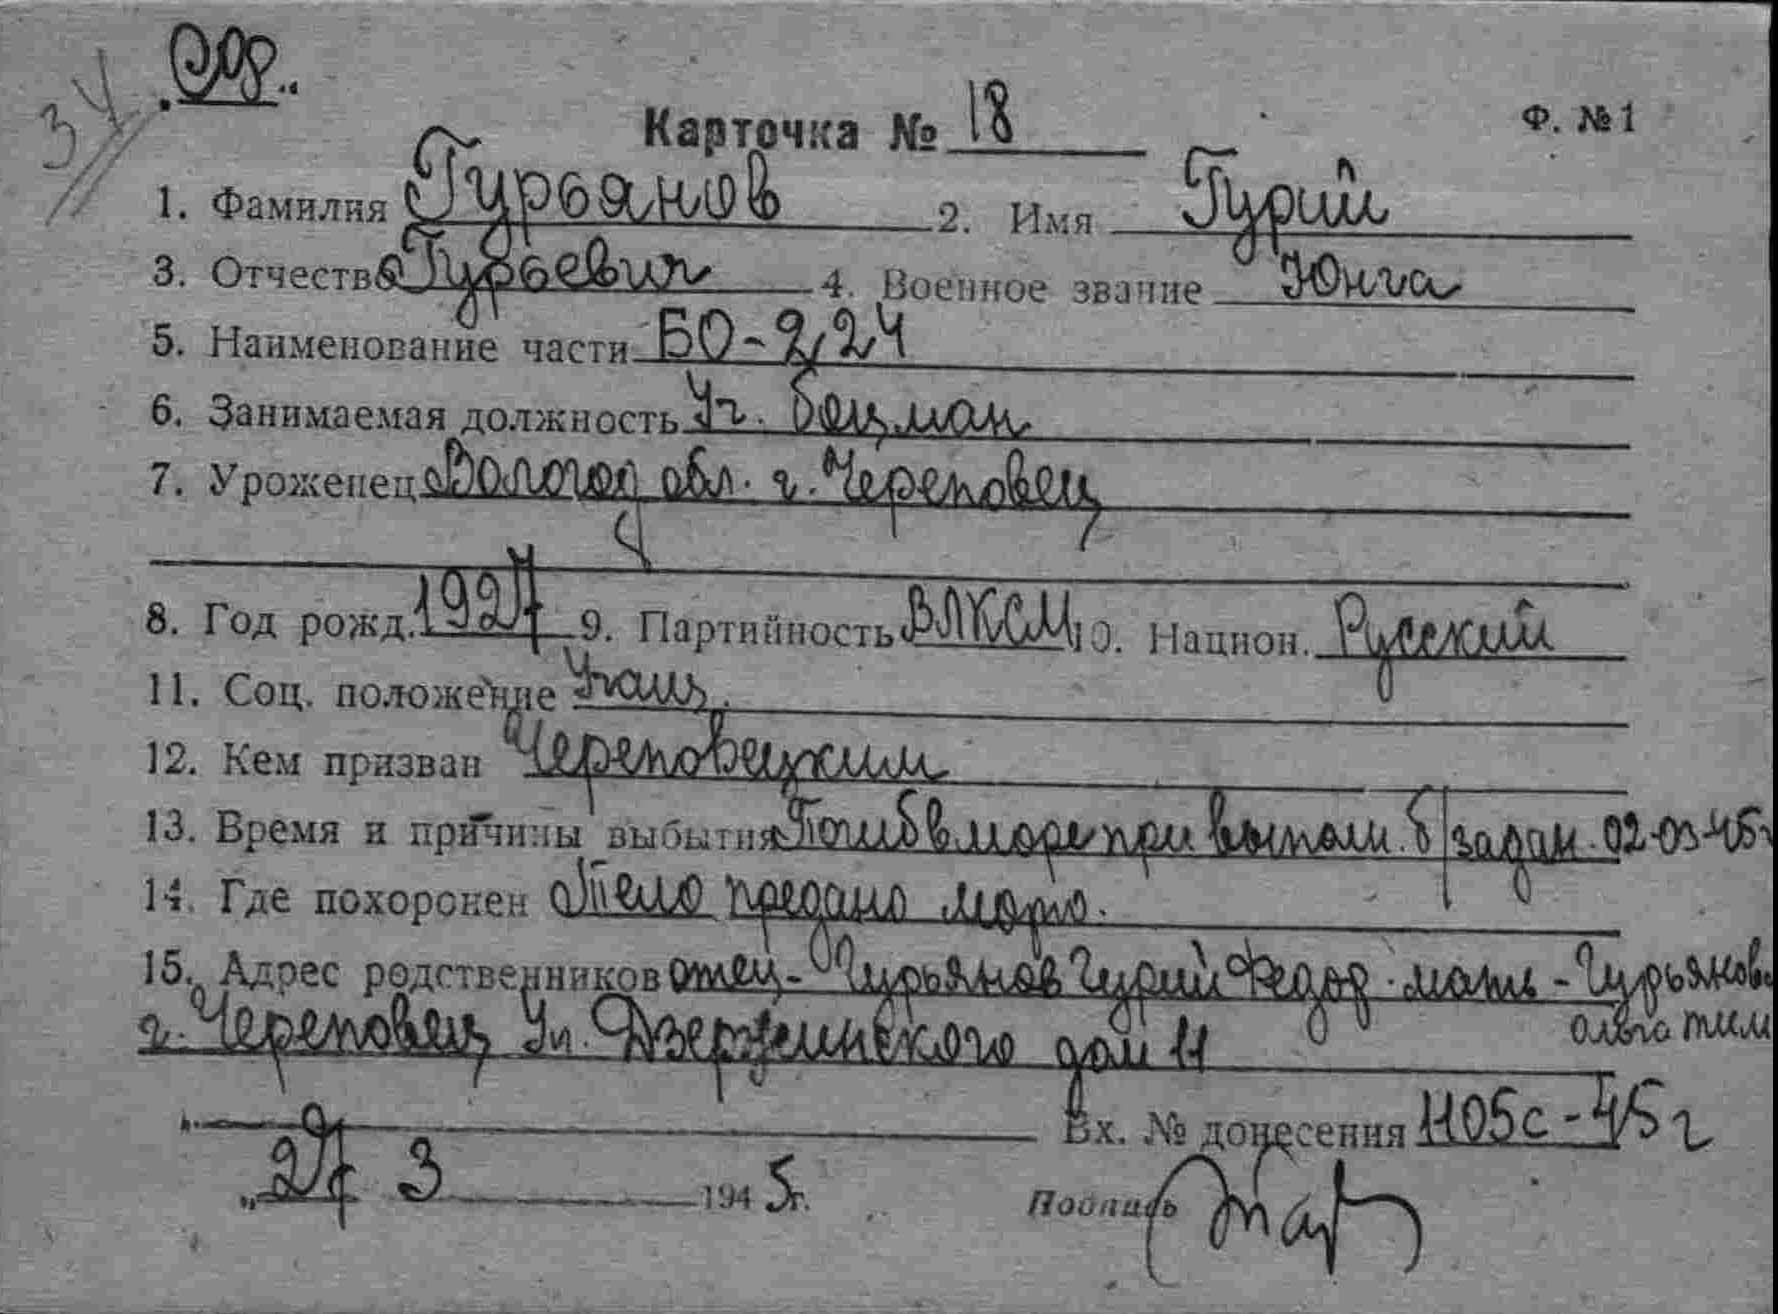 34 Одр.
Карточка № 18 Ф. №1
1. Фамилия Гурьянов 2. Имя Гурий
3. Отчество Гурьевич 4. Военное звание Юнга
5. Наименование части БО-224
6. Занимаемая должность Уч. боцман
7. Уроженец Вологод обл. г. Череповец
8. Год рожд. 1927 9. Партийность ВЛКСМ 10. Национ. Русский
11. Соц. положение Учащ.
12. Кем призван Череповецким
13. Время и причины выбытия Погиб в море при выполн. б/задан. 02-03-45г
14. Где похоронен Тело предано морю.
15. Адрес родственников отец - Гурьянов Гурий Федор. мать - Гурьянова
ольга тим
г. Череповец Ул. Дзержинского дом 11
Вх. № донесения 1105с-45г
„27 3 1945г. Подпись